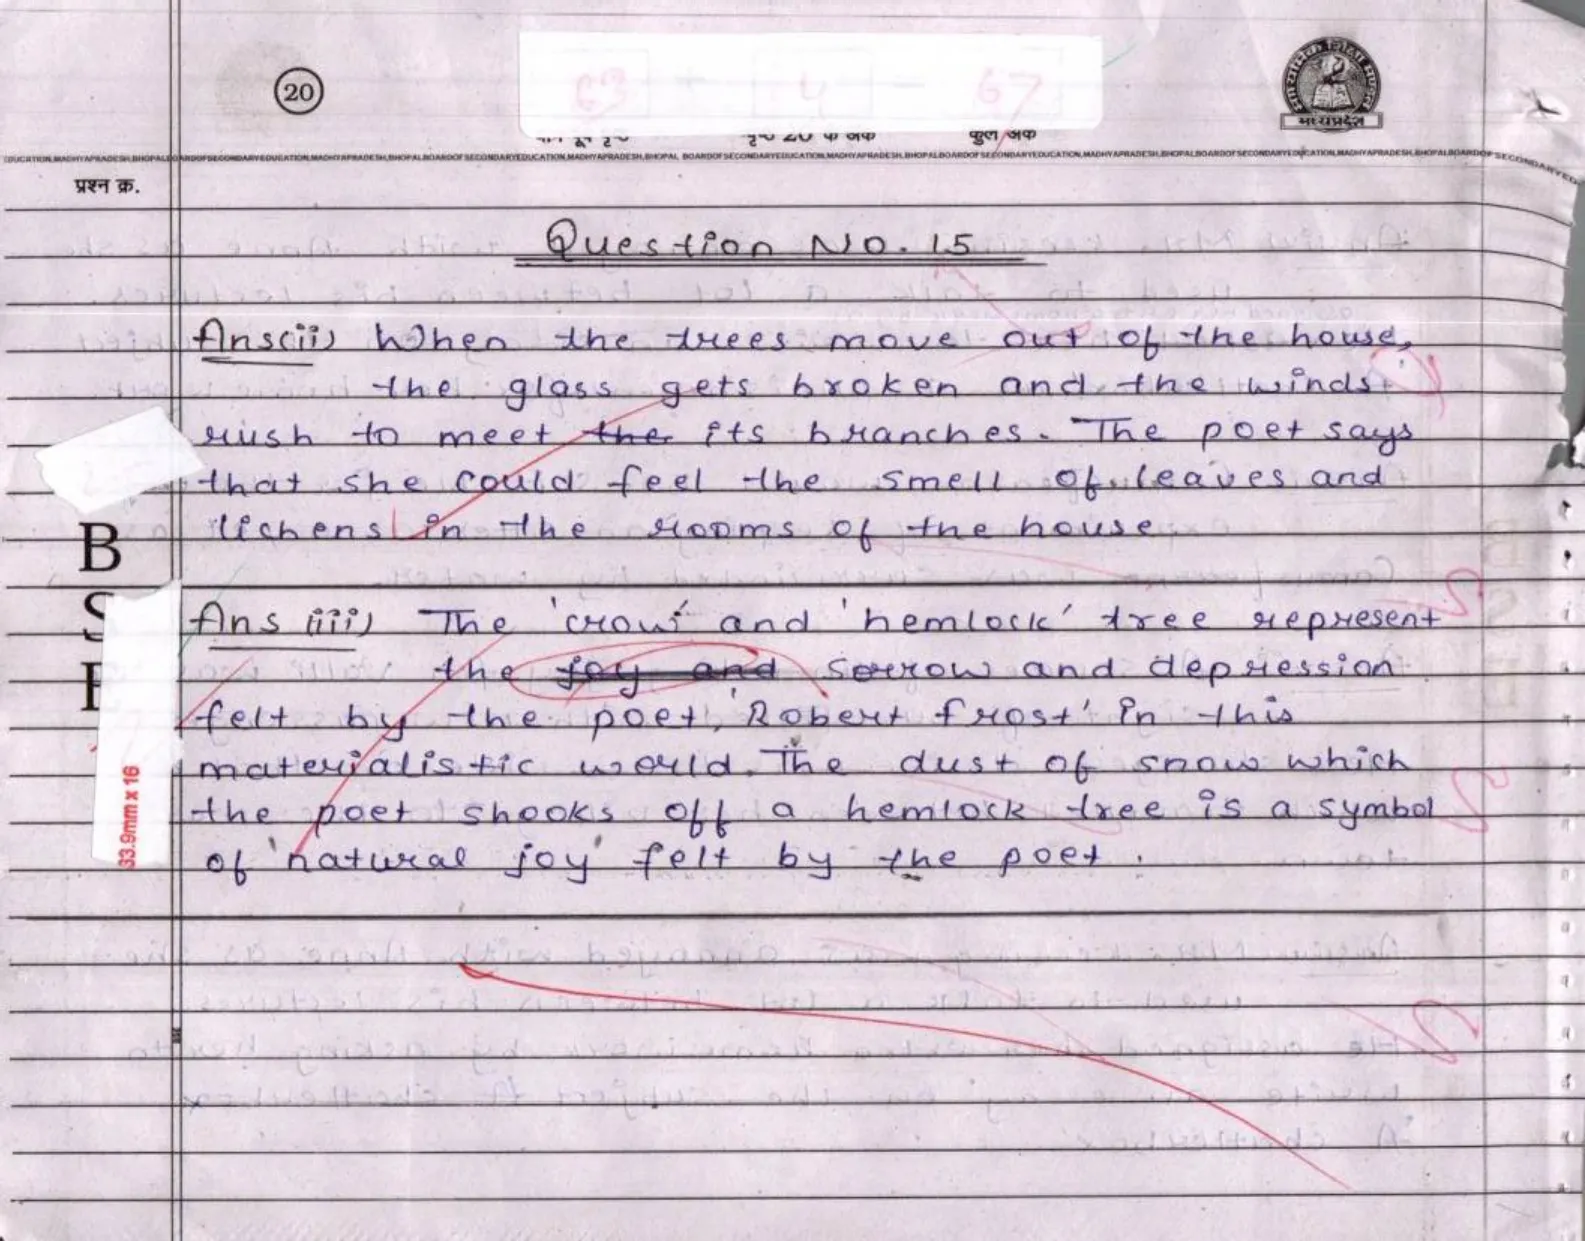 20
63 + 4 = 67
कुल अंक
मध्यप्रदेश
BOARD OF SECONDARY EDUCATION, MADHYAPRADESH, BHOPAL
प्रश्न क्र.
Question No. 15
Ans(ii) When the trees move out of the house,
the glass gets broken and the winds
rush to meet the its branches. The poet says
that she could feel the smell of leaves and
lichens in the rooms of the house.
B
S
E
Ans (iii) The 'crow' and 'hemlock' tree represent
the joy and sorrow and depression
felt by the poet, 'Robert frost' in this
materialistic world. The dust of snow which
the poet shooks off a hemlock tree is a symbol
of 'natural joy' felt by the poet.
33.9mm x 16